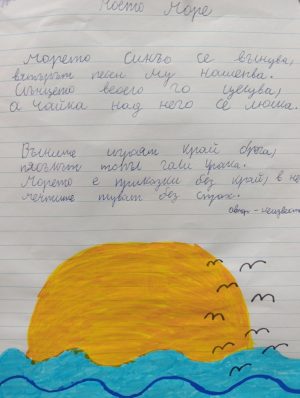 Моето Море
Морето синьо се вълнува,
вятърът песни му нашепва.
Слънцето весело го целува,
а чайка над него се люшка.
Вълните играят край брега,
пясъкът топъл гали крака.
Морето е приказка без край, в не
мечтите плуват без страх.
автор - неизвестен